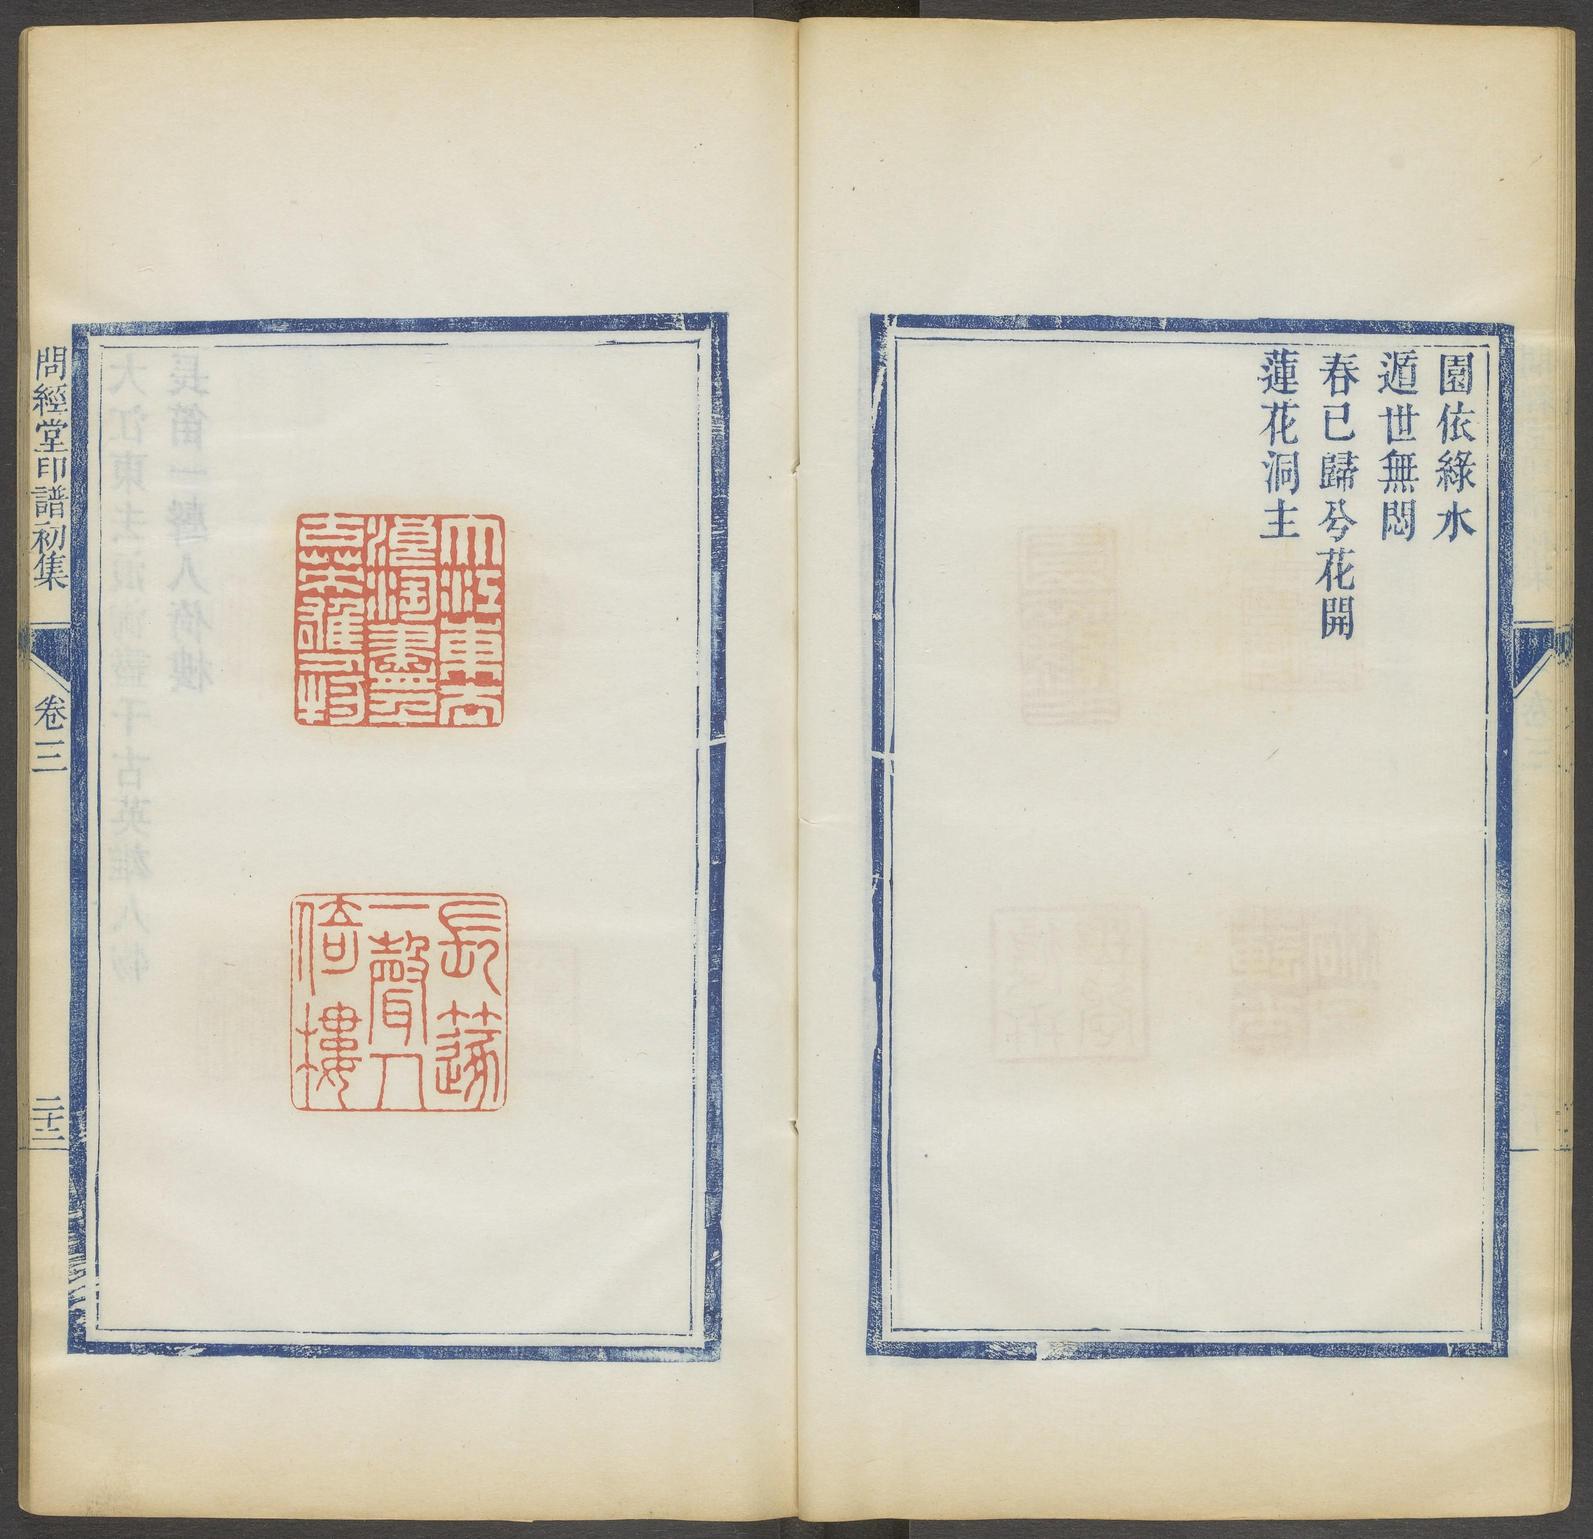 園依綠水
遁世無悶
春已歸兮花開
蓮花洞主
大江東去
浪淘盡千
古英雄人物
長篴
一聲人
倚樓
問經堂印譜初集
卷三
二十二